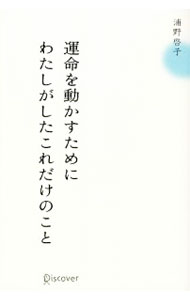 浦野啓子
運命を動かすために
わたしがしたこれだけのこと
Discover